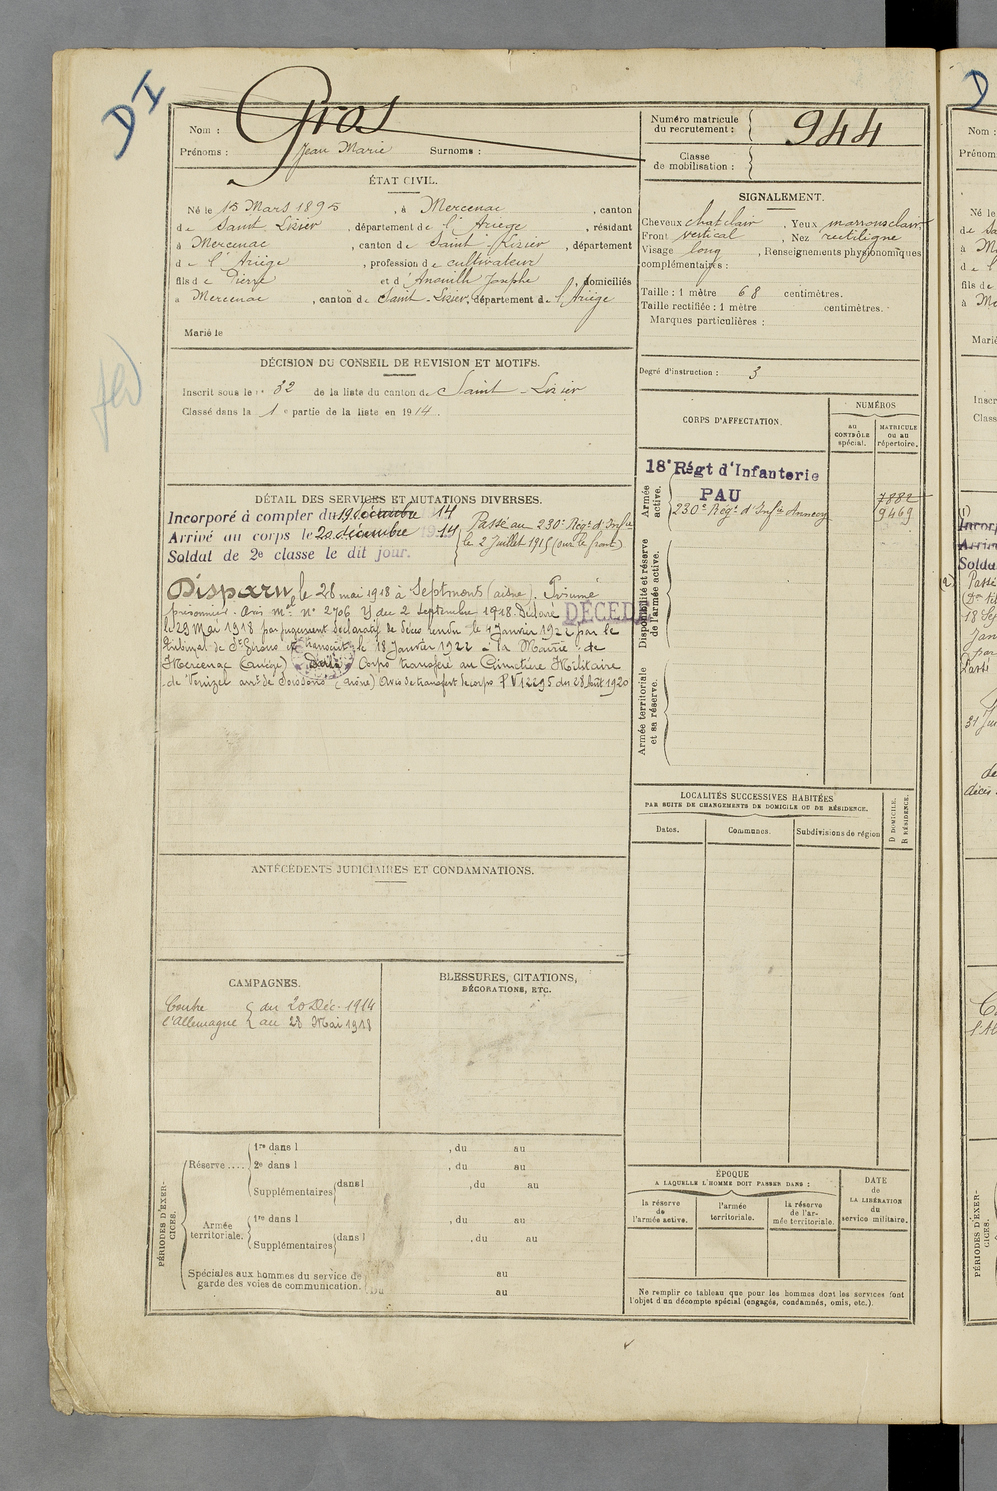 DI
Nom : Gros
Prénoms : Jean Marie Surnoms :
Numéro matricule
du recrutement : 944
Classe
de mobilisation :
ÉTAT CIVIL.
Né le 15 Mars 1895, à Mercenac, canton
de Saint Lizier, département de l'Ariège, résidant
à Mercenac, canton de Saint-Lizier, département
d e l'Ariège, profession de cultivateur
fils de Pierre et d'Anouilh Josèphe, domiciliés
à Mercenac, canton de Saint-Lizier, département de l'Ariège
Marié le
SIGNALEMENT.
Cheveux chat clair. Yeux marrons clair.
Front vertical, Nez rectiligne
Visage long, Renseignements physionomiques
complémentaires :
Taille : 1 mètre 68 centimètres.
Taille rectifiée : 1 mètre centimètres.
Marques particulières :
Degré d'instruction : 3
DÉCISION DU CONSEIL DE REVISION ET MOTIFS.
Inscrit sous le n° 32 de la liste du canton de Saint-Lizier
Classé dans la 1e partie de la liste en 1914.
CORPS D'AFFECTATION.
NUMÉROS
AU CONTRÔLE spécial.
MATRICULE OU AU répertoire.
Armée active.
18e Régt d'Infanterie
PAU
7882
230e Régt d'Infie Annecy 9469
Disponibilité et réserve de l'armée active.
Armée territoriale et sa réserve.
DÉTAIL DES SERVICES ET MUTATIONS DIVERSES.
Incorporé à compter du 19 décembre 14
Arrivé au corps le 20 décembre 1914
Soldat de 2e classe le dit jour.
Passé au 230e Régt d'Infie
le 2 Juillet 1915 (sur le front)
Disparu, le 28 mai 1918 à Septmonts (aisne). Présumé
prisonnier. Avis Mel n° 2706 Y du 2 Septembre 1918. Déclaré DÉCÉDÉ
le 29 Mai 1918 par jugement déclaratif de décès rendu le 4 Janvier 1922 par le
tribunal de St Girons et transcrit le 18 Janvier 1922 à la Mairie de
Mercenac (Ariège) Corps transféré au Cimetière Militaire
de "Venizel arrt de Soissons" (Aisne) Avis de transfert de corps P.V 12295 du 28 Août 1920
LOCALITÉS SUCCESSIVES HABITÉES
PAR SUITE DE CHANGEMENTS DE DOMICILE OU DE RÉSIDENCE.
Dates. Communes. Subdivisions de région D DOMICILE. R RÉSIDENCE.
ANTÉCÉDENTS JUDICIAIRES ET CONDAMNATIONS.
CAMPAGNES.
Contre du 20 Déc. 1914
l'Allemagne au 28 Mai 1918
BLESSURES, CITATIONS,
DÉCORATIONS, ETC.
PÉRIODES D'EXERCICES.
Réserve ....
1re dans l , du au
2e dans l , du au
Supplémentaires dans l , du au
Armée territoriale.
1re dans l , du au
Supplémentaires dans l , du au
Spéciales aux hommes du service de
garde des voies de communication. Du au
au
ÉPOQUE
A LAQUELLE L'HOMME DOIT PASSER DANS :
la réserve de l'armée active.
l'armée territoriale.
la réserve de l'armée territoriale.
DATE de LA LIBÉRATION du service militaire.
Ne remplir ce tableau que pour les hommes dont les services font
l'objet d'un décompte spécial (engagés, condamnés, omis, etc.).